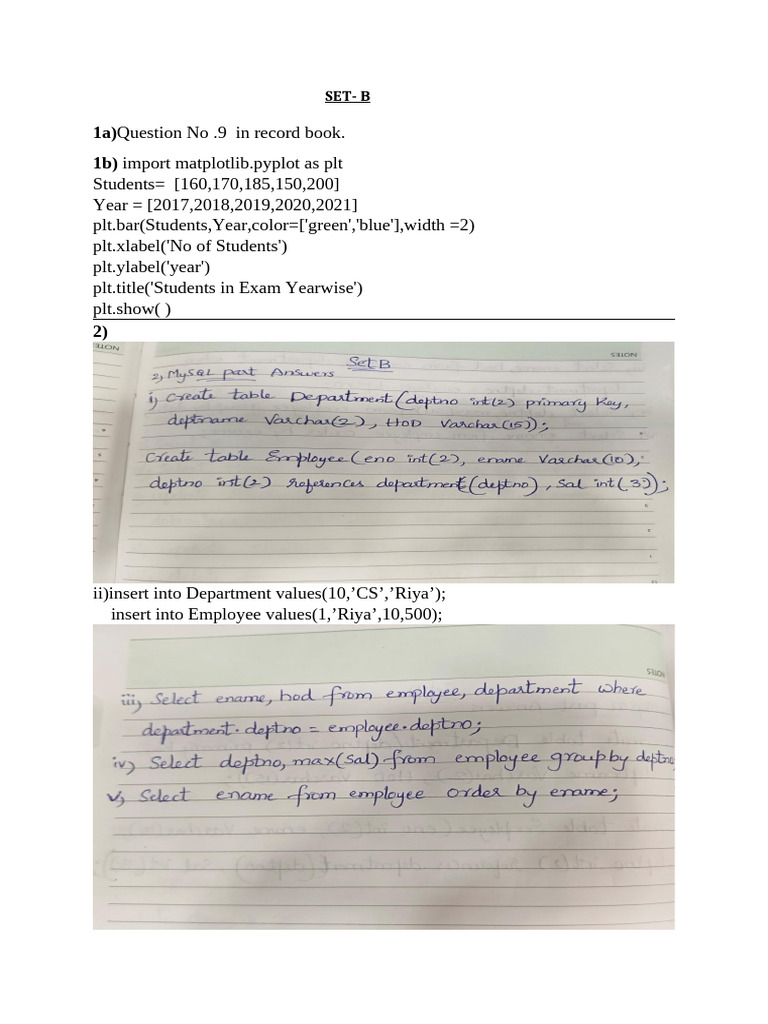 SET- B
1a)Question No .9 in record book.
1b) import matplotlib.pyplot as plt
Students= [160,170,185,150,200]
Year = [2017,2018,2019,2020,2021]
plt.bar(Students,Year,color=['green','blue'],width =2)
plt.xlabel('No of Students')
plt.ylabel('year')
plt.title('Students in Exam Yearwise')
plt.show( )
2)
NOTES
NOTES
Set B
2, MySQL part Answers
i) Create table Department(deptno int(2) primary key,
deptname Varchar(2), HOD Varchar(15));
Create table Employee(eno int(2), ename Varchar(10),
deptno int(2) references department(deptno), Sal int(3));
ii)insert into Department values(10,’CS’,’Riya’);
insert into Employee values(1,’Riya’,10,500);
NOTES
iii) Select ename, hod from employee, department where
department.deptno = employee.deptno;
iv) Select deptno, max(Sal) from employee group by deptno
v, Select ename from employee order by ename;